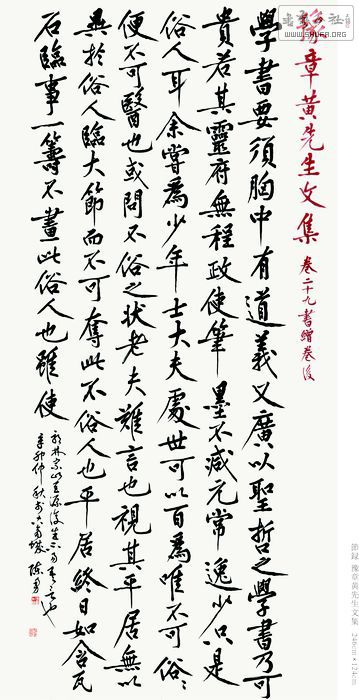 WWW.SHUFA.ORG
豫章黄先生文集 卷二十九書贈卷後
學書要須胸中有道義又廣以聖哲之學書乃可
貴若其靈府無程政使筆墨不減元常逸少只是
俗人耳余嘗爲少年士大夫處世可以百爲唯不可俗〻
便不可醫也或問不俗之狀老夫難言也視其平居無以
異於俗人臨大節而不可奪此不俗人也平居終日如含瓦
石臨事一籌不畫此俗人也雖使
郭林宗山巨源復生不易吾言也
辛卯仲秋於
節録 豫章黄先生文集 246cm×124cm